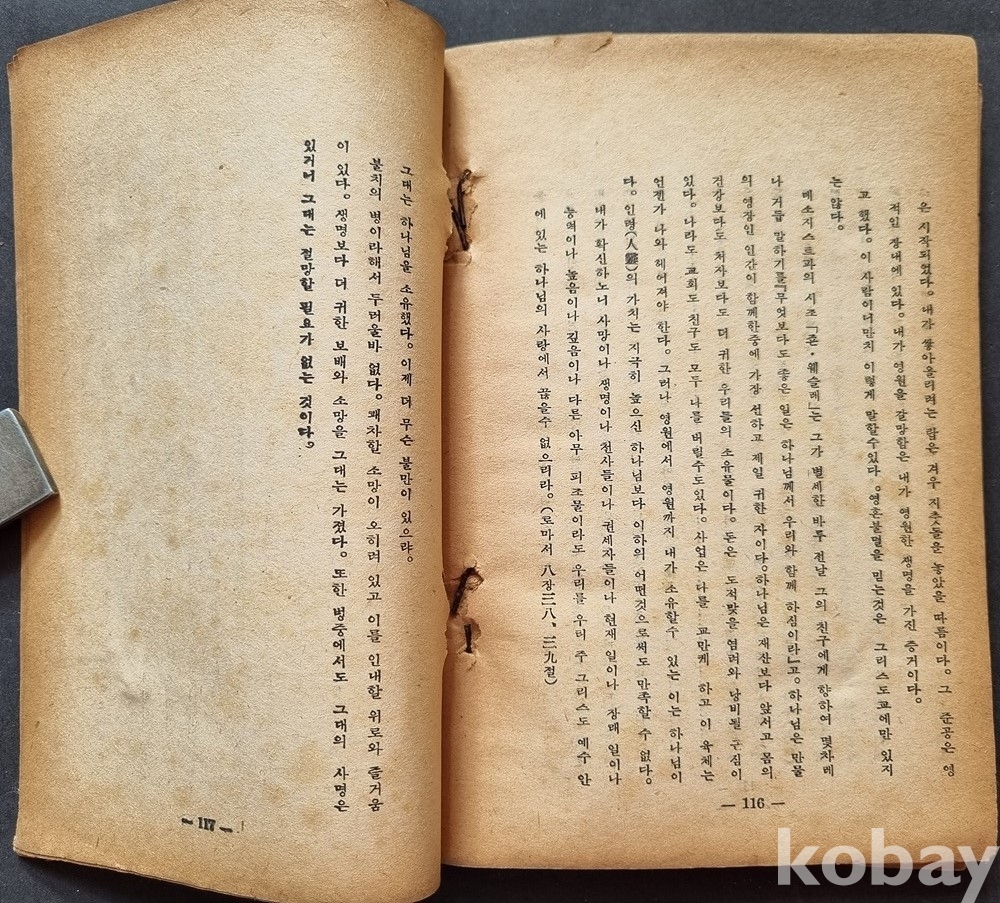 은 시작되었다。내가 쌓아올리려는 탑은 겨우 지춧돌을 놓았을 따름이다。그 준공은 영
적인 장대에 있다。내가 영원을 갈망함은 내가 영원한 생명을 가진 증거이다。
고 했다。이 사람이니만치 이렇게 말할수있다。영혼불멸을 믿는것은 그리스도교에만 있지
는 않다。
메소지스트파의 시조「죤·웨슬레」는 그가 별세한 바투 전날 그의 친구에게 향하여 몇차례
나 거듭 말하기를『무엇보다도 좋은 일은 하나님께서 우리와 함께 하심이라』고。하나님은 만물
의 영장인 인간이 함께한중에 가장 선하고 제일 귀한 자이다。하나님은 재산보다 앞서고 몸의
건강보다도 처자보다도 더 귀한 우리들의 소유물이다。돈은 도적맞을 염려와 낭비될 근심이
있다。나라도 교회도 친구도 모두 나를 버릴수도있다。사업은 나를 교만케 하고 이 육체는
언젠가 나와 헤어져야 한다。그러나 영원에서 영원까지 내가 소유할수 있는 이는 하나님이
다。인령(人靈)의 가치는 지극히 높으신 하나님보다 이하의 어떤것으로써도 만족할 수 없다。
내가 확신하노니 사망이나 생명이나 천사들이나 권세자들이나 현재 일이나 장래 일이나
능력이나 높음이나 깊음이나 다른 아무 피조물이라도 우리를 우리 주 그리스도 예수 안
에 있는 하나님의 사랑에서 끊을수 없으리라。(로마서 八장三八、三九절)
— 116 —
그대는 하나님을 소유했다。이제 더 무슨 불만이 있으랴。
불치의 병이라해서 두려울바 없다。쾌차할 소망이 오히려 있고 이를 인내할 위로와 즐거움
이 있다。생명보다 더 귀한 보배와 소망을 그대는 가졌다。또한 병중에서도 그대의 사명은
있거니 그대는 절망할 필요가 없는 것이다。
— 117 —
kobay